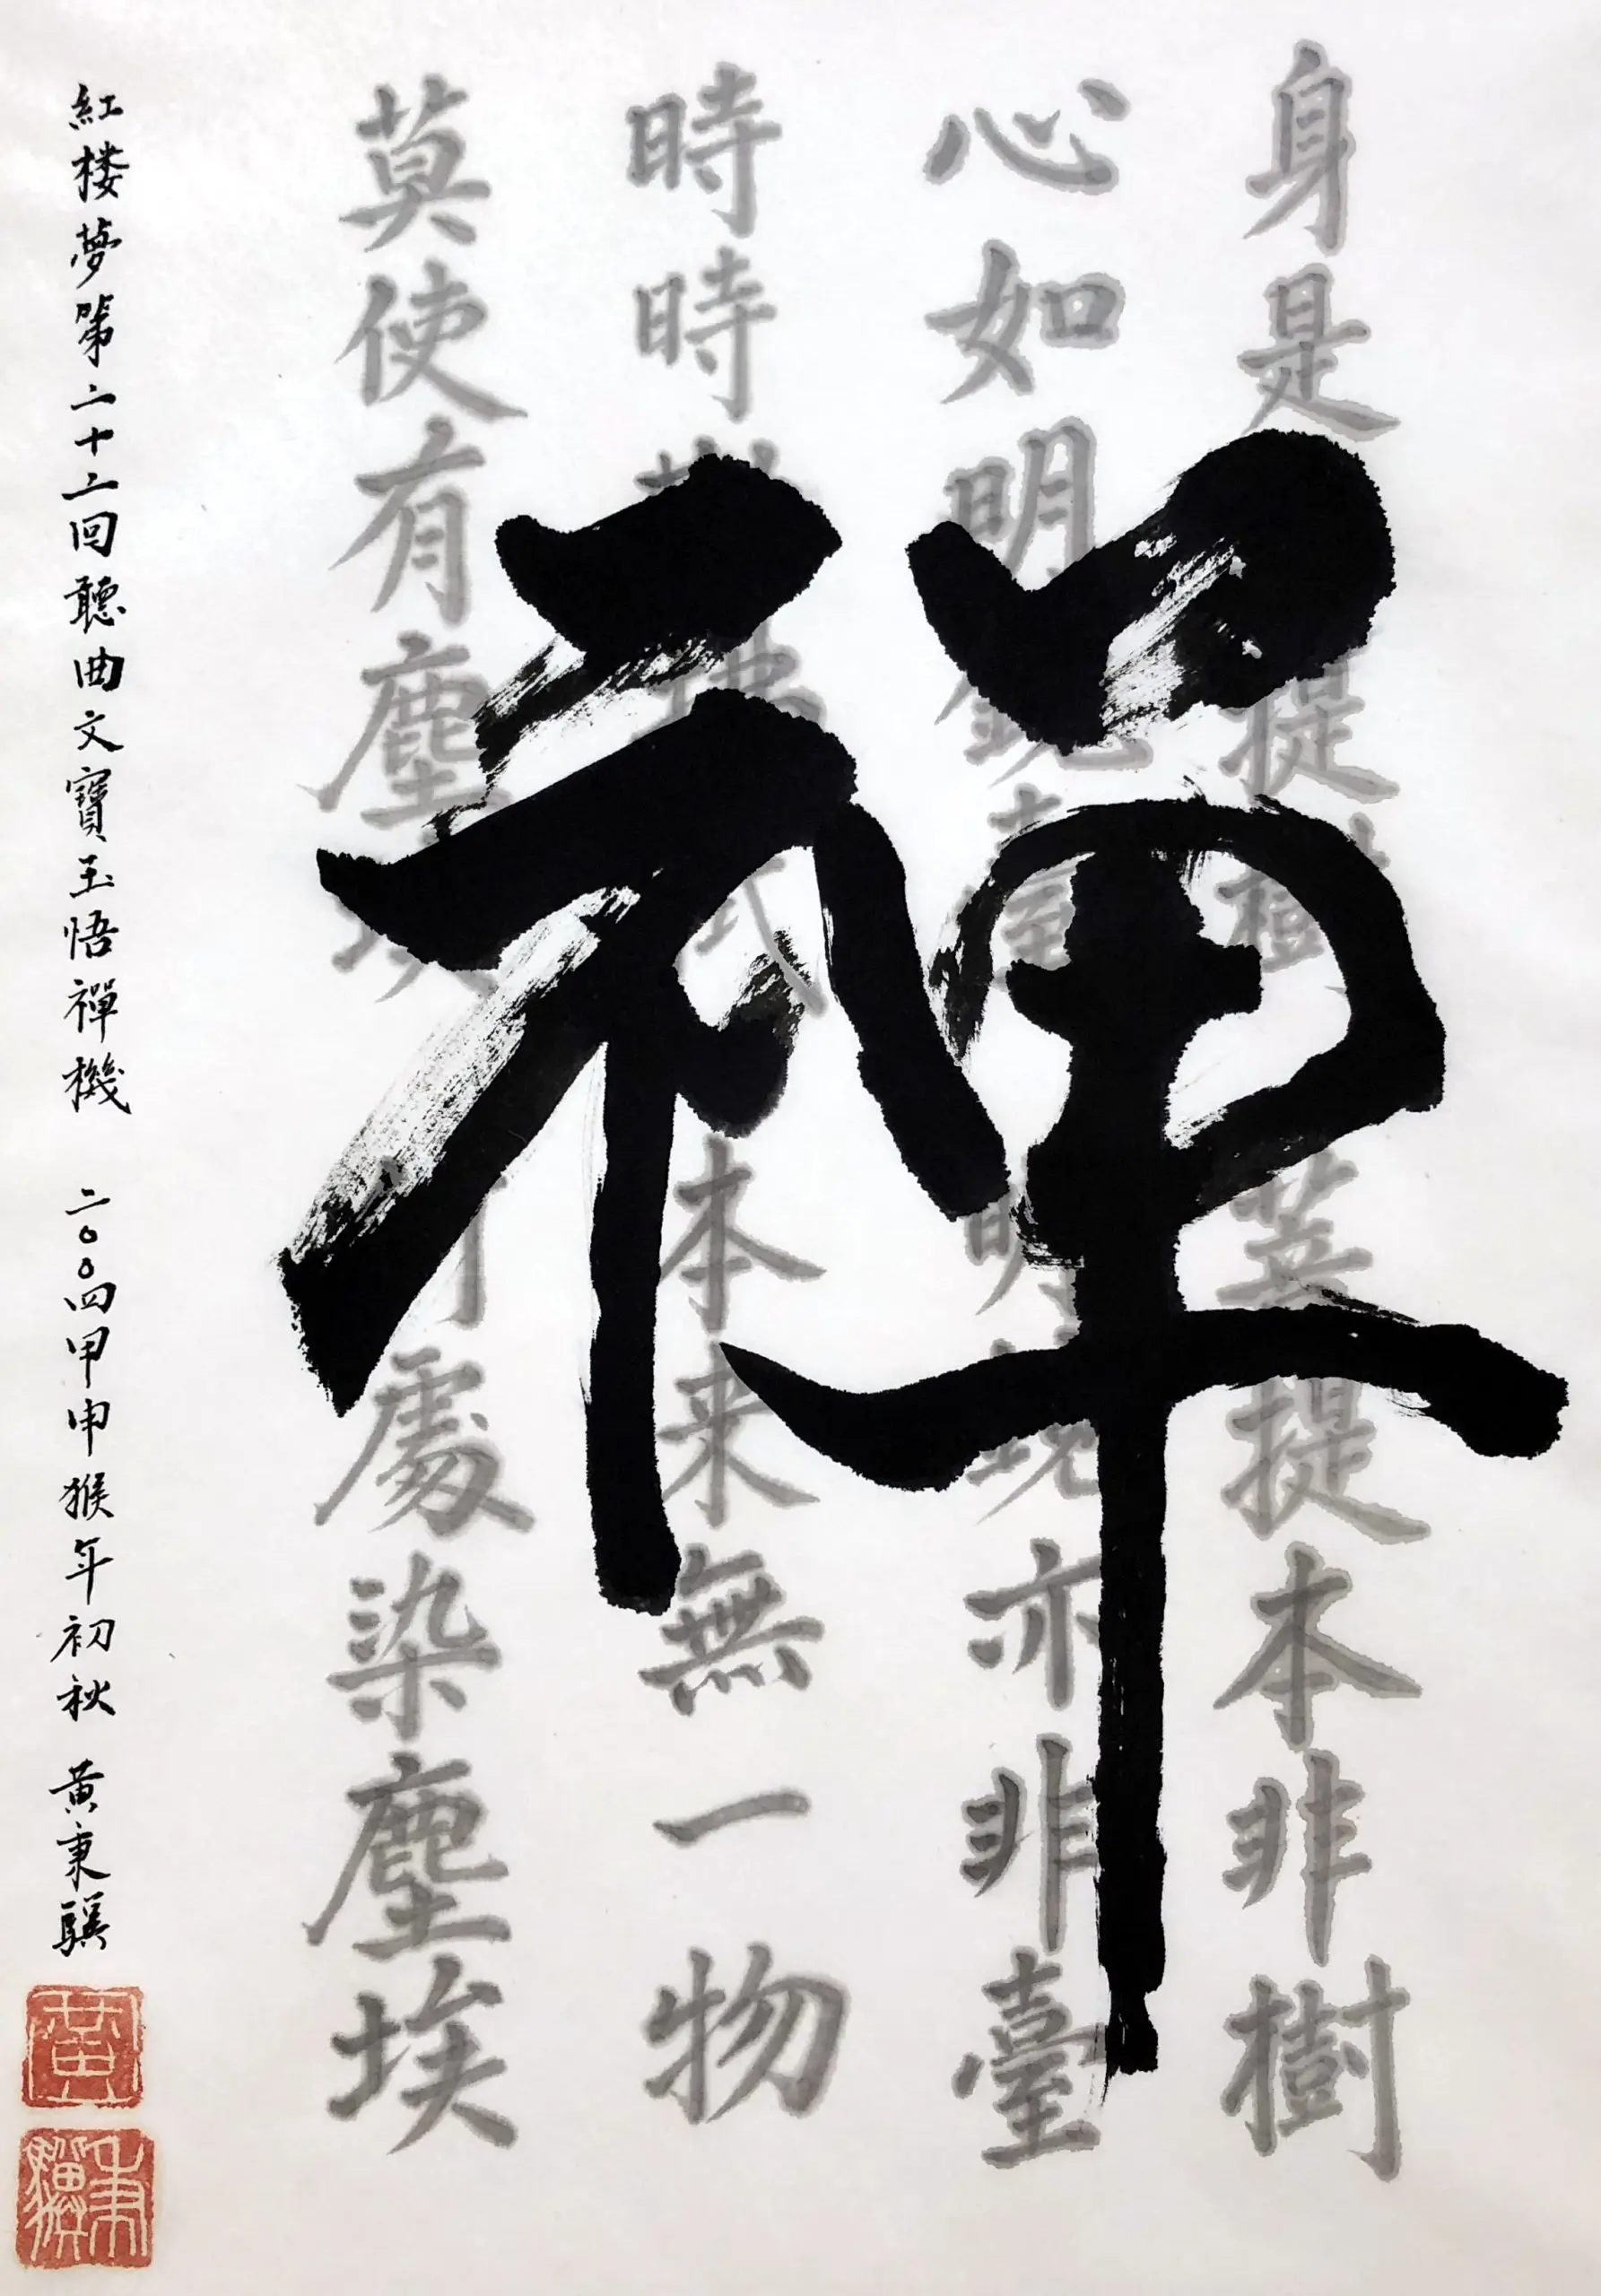 禪
身是提樹
菩提本非樹
心如明鏡臺
明鏡亦非臺
時時勤拂拭
本来無一物
莫使有塵埃
何處染塵埃
紅楼夢第二十二回聽曲文寶玉悟禪機 二〇〇四甲申猴年初秋 黄秉驥
黄
秉驥